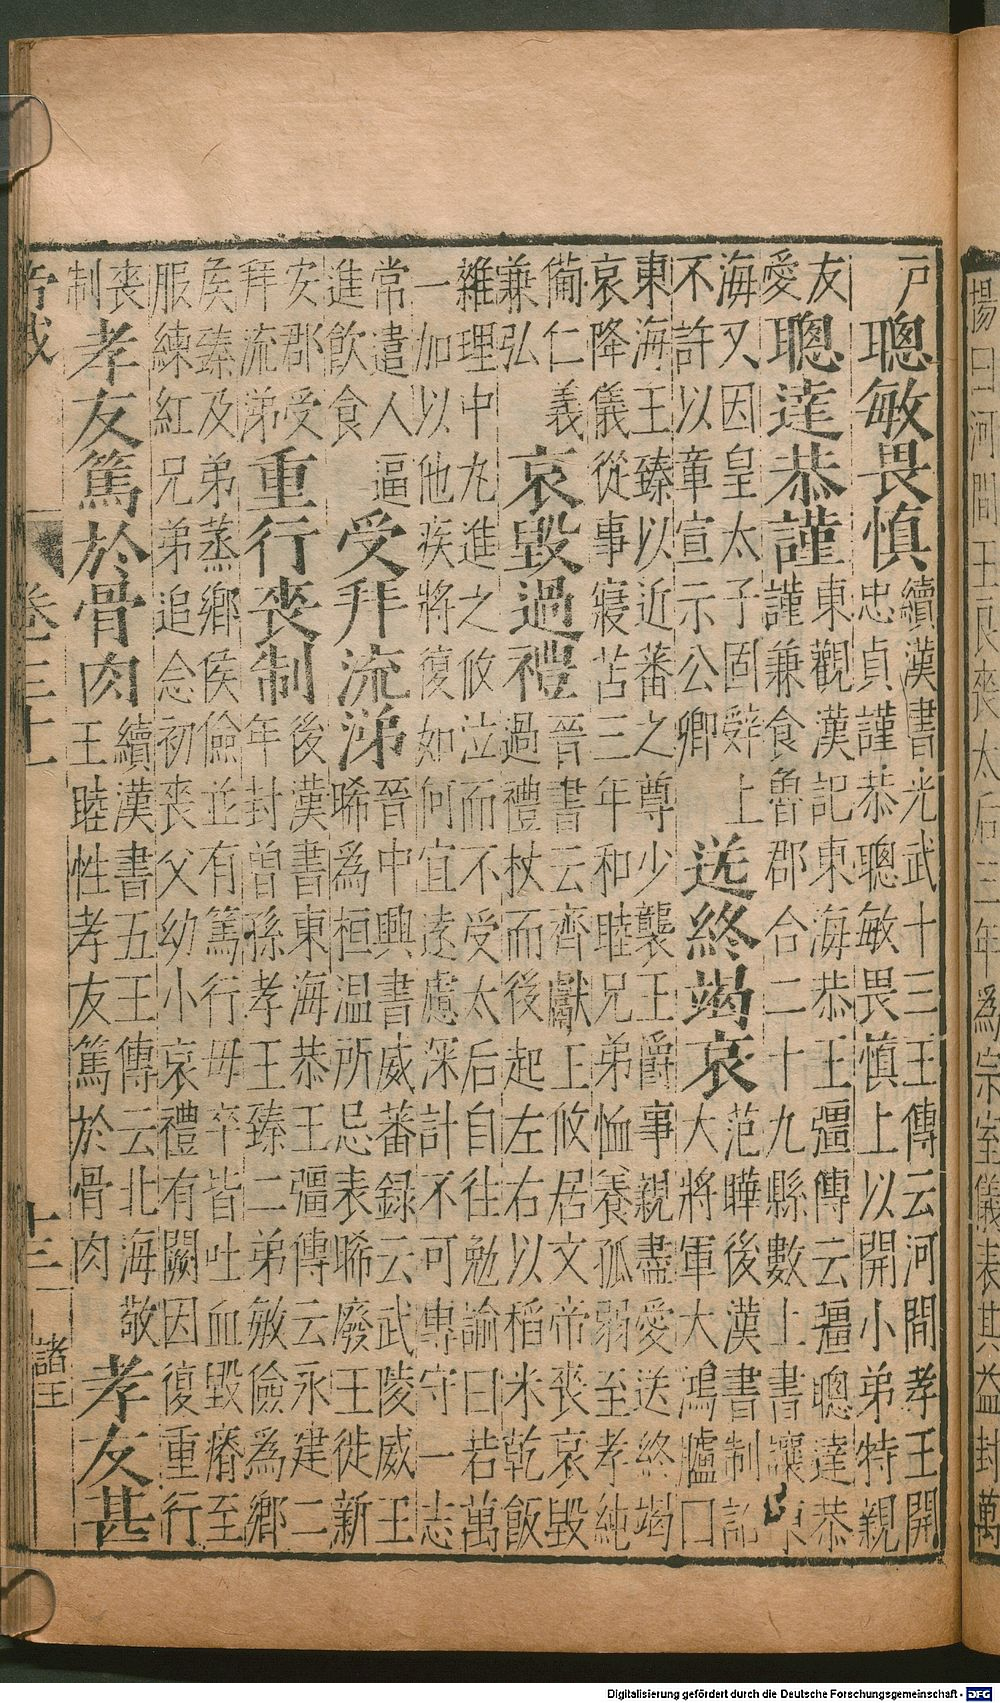 揚曰河間王良喪太后三年為宗室儀表其益封萬
戶
聰敏畏慎
續漢書光武十三王傳云河間孝王開
忠貞謹恭聰敏畏慎上以開小弟特親
友
愛
聰達恭謹
東觀漢記東海恭王彊傳云彊聰達恭
謹兼食魯郡合二十九縣數上書讓東
海又因皇太子固辤上
不許以章宣示公卿
送終竭哀
范曄後漢書制詔
大將軍大鴻臚曰
東海王臻以近蕃之尊少襲王爵事親盡愛送終竭
哀降儀從事寢苫三年和睦兄弟恤養孤弱至孝純
備仁義
兼弘
哀毀過禮
晉書云齊獻上攸居文帝喪哀毀
過禮杖而後起左右以稻米乾飯
雜理中丸進之攸泣而不受太后自往勉諭曰若萬
一加以他疾將復如何宜遠慮深計不可專守一志
常遣人逼
進飲食
受拜流涕
晉中興書威蕃録云武陵威王
晞為桓温所忌表晞廢王徙新
安郡受
拜流涕
重行喪制
後漢書東海恭王彊傳云永建二
年封曽孫孝王臻二弟敏儉為鄉
矦臻及弟蒸鄉侯儉並有篤行毋卒皆吐血毀瘠至
服練紅兄弟追念初喪父幼小哀禮有闕因復重行
喪
制
孝友篤於骨肉
續漢書五王傳云北海敬
王睦性孝友篤於骨肉
孝友甚
卷三十一
十三
諸王
Digitalisierung gefördert durch die Deutsche Forschungsgemeinschaft - DFG